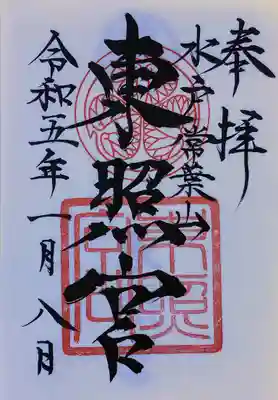 奉拝
水戸常葉山
東照宮
令和五年一月八日